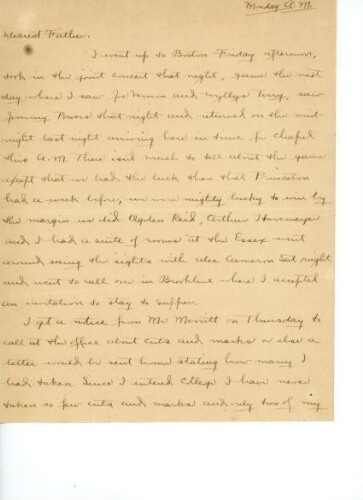 Monday A.M.
Dearest Father:
I went up to Boston Friday afternoon,
took in the joint concert that night, game the next
day where I saw Jo Vernon and Wyllys Terry, saw
Jimmy Powers that night and returned on the mid
night last night arriving here in time for Chapel
this A.M. There isn't much to tell about the game
except that we had the luck then that Princeton
had a week before, we were mighty lucky to win by
the margin we did. Ogden Reid, Arthur Havemeyer
and I had a suite of rooms at the Essex. went
around seeing the sights with Alec Cameron Sat. night
and went to call one in Brookline where I accepted
an invitation to stay to supper.
I got a notice from Mr Merritt on Thursday to
call at the office about cuts and marks or else a
letter would be sent home stating how many I
had taken. Since I entered College I have never
taken so few cuts and marks and only two of my